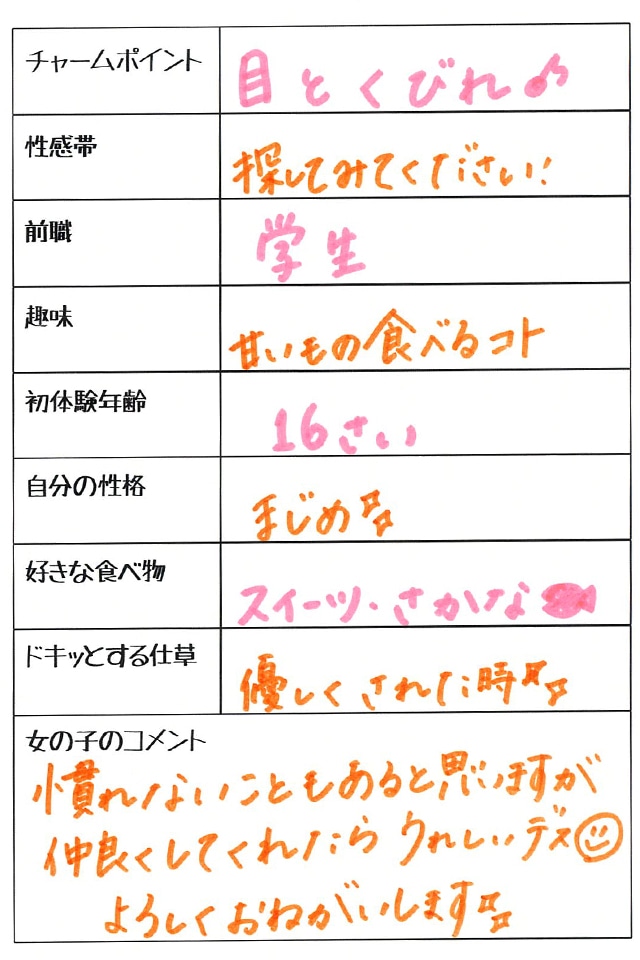 チャームポイント 目とくびれ♪
性感帯 探してみてください!
前職 学生
趣味 甘いもの食べるコト
初体験年齢 16さい
自分の性格 まじめ
好きな食べ物 スイーツ・さかな
ドキッとする仕草 優しくされた時
女の子のコメント
慣れないこともあると思いますが
仲良くしてくれたらうれしいデス
よろしくおねがいします